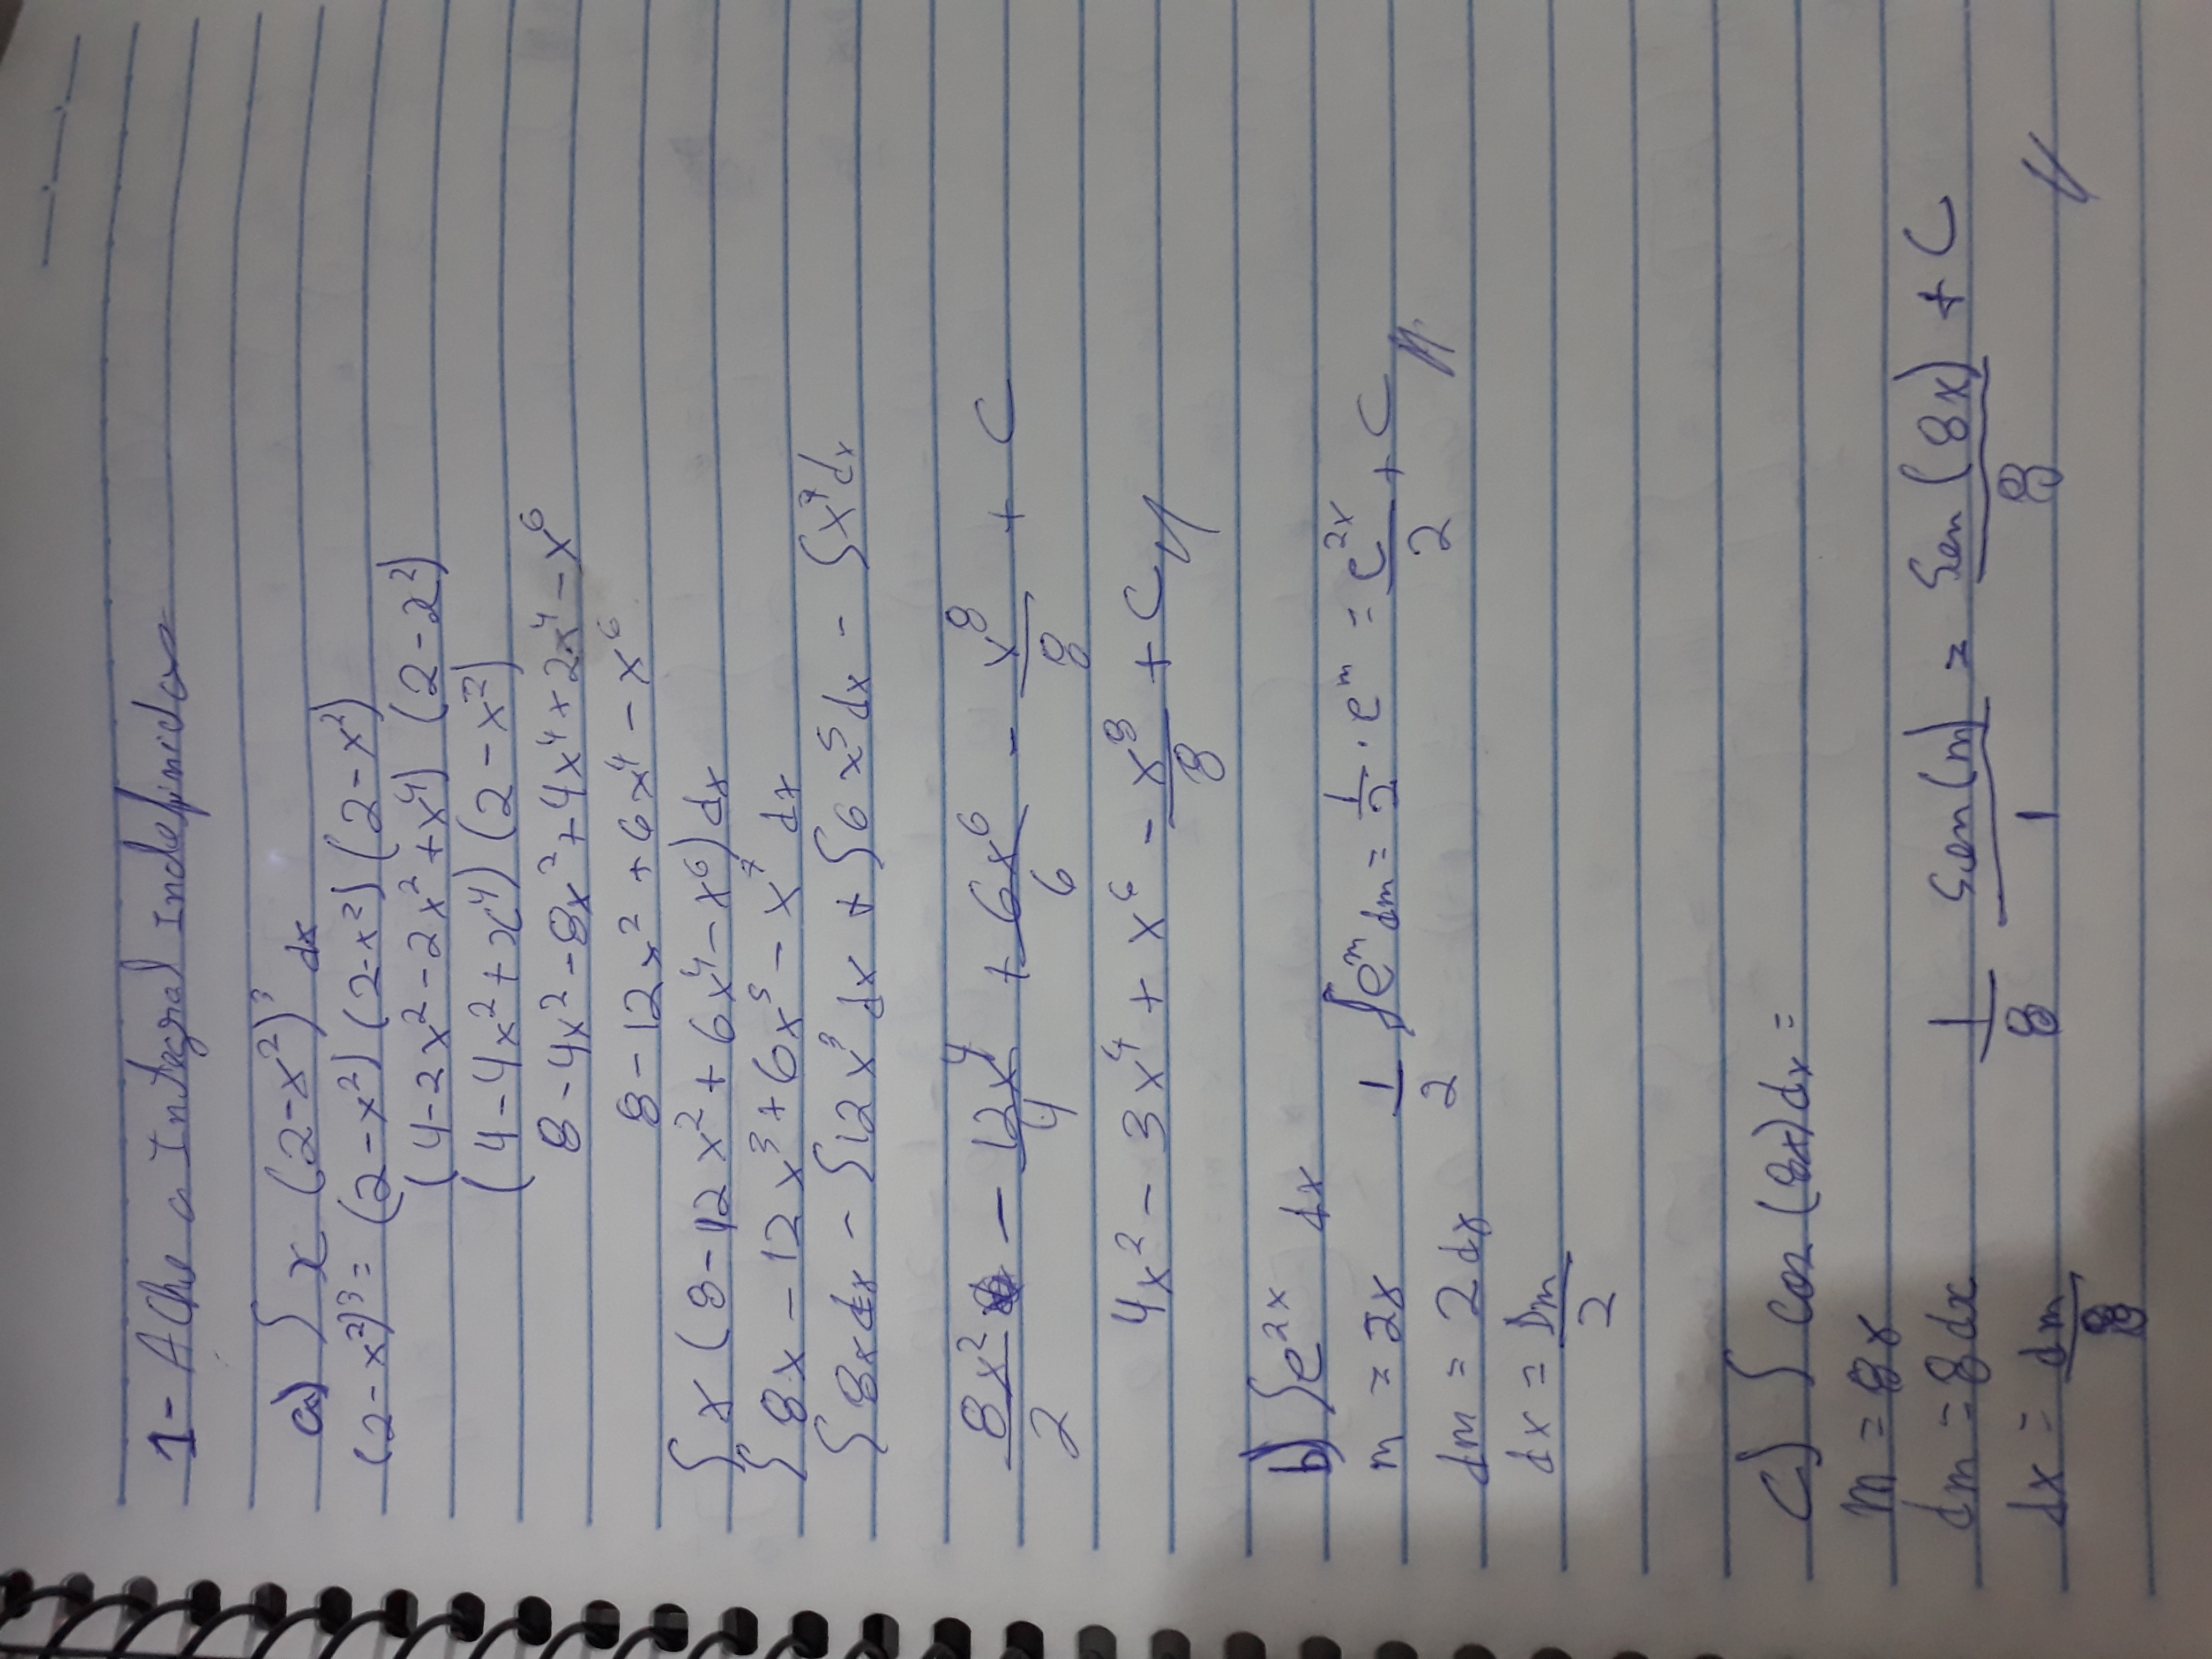 1- Ache a Integral Indefinida
a) ∫ x (2-x²)³ dx
(2-x²)³ = (2-x²) (2-x²) (2-x²)
(4-2x²-2x²+x⁴) (2-x²)
(4-4x²+x⁴) (2-x²)
8-4x²-8x²+4x⁴+2x⁴-x⁶
8-12x²+6x⁴-x⁶
∫ x (8-12x²+6x⁴-x⁶) dx
∫ 8x-12x³+6x⁵-x⁷ dx
∫ 8x dx - ∫ 12x³ dx + ∫ 6x⁵ dx - ∫ x⁷ dx
8x²/2 - 12x⁴/4 + 6x⁶/6 - x⁸/8 + C
4x² - 3x⁴ + x⁶ - x⁸/8 + C //
b) ∫ e²ˣ dx
m = 2x 1/2 ∫ eᵐ dm = 1/2 · eᵐ = e²ˣ/2 + C //
dm = 2dx
dx = Dm/2
c) ∫ cos (8x) dx =
m = 8x
dm = 8dx 1/8 Sen(m)/1 = Sen(8x)/8 + C //
dx = dm/8